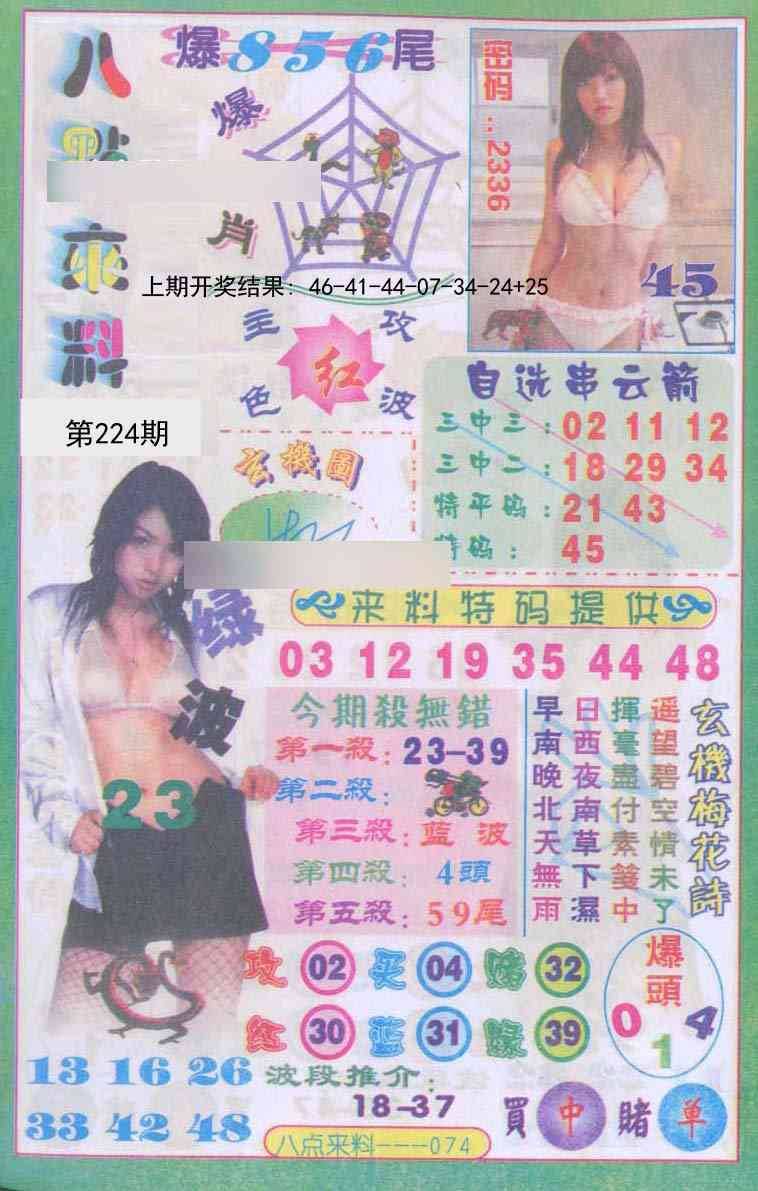 八點來料
爆856尾
爆肖
密码：2336
45
上期开奖结果：46-41-44-07-34-24+25
主攻
红
色波
第224期
自选串云箭
三中三：02 11 12
三中二：18 29 34
特平码：21 43
特码：45
玄機圖
绿波
23
来料特码提供
03 12 19 35 44 48
今期殺無錯
第一殺：23-39
第二殺：
第三殺：蓝波
第四殺：4頭
第五殺：59尾
玄機梅花詩
遥望碧空情未了
揮毫盡付素箋中
日西夜南草下濕
早南晚北天無雨
攻 02 买 04 赌 32
红 30 蓝 31 绿 39
爆頭
0 1 4
13 16 26
33 42 48
波段推介：
18-37
買中賭单
八点来料---074